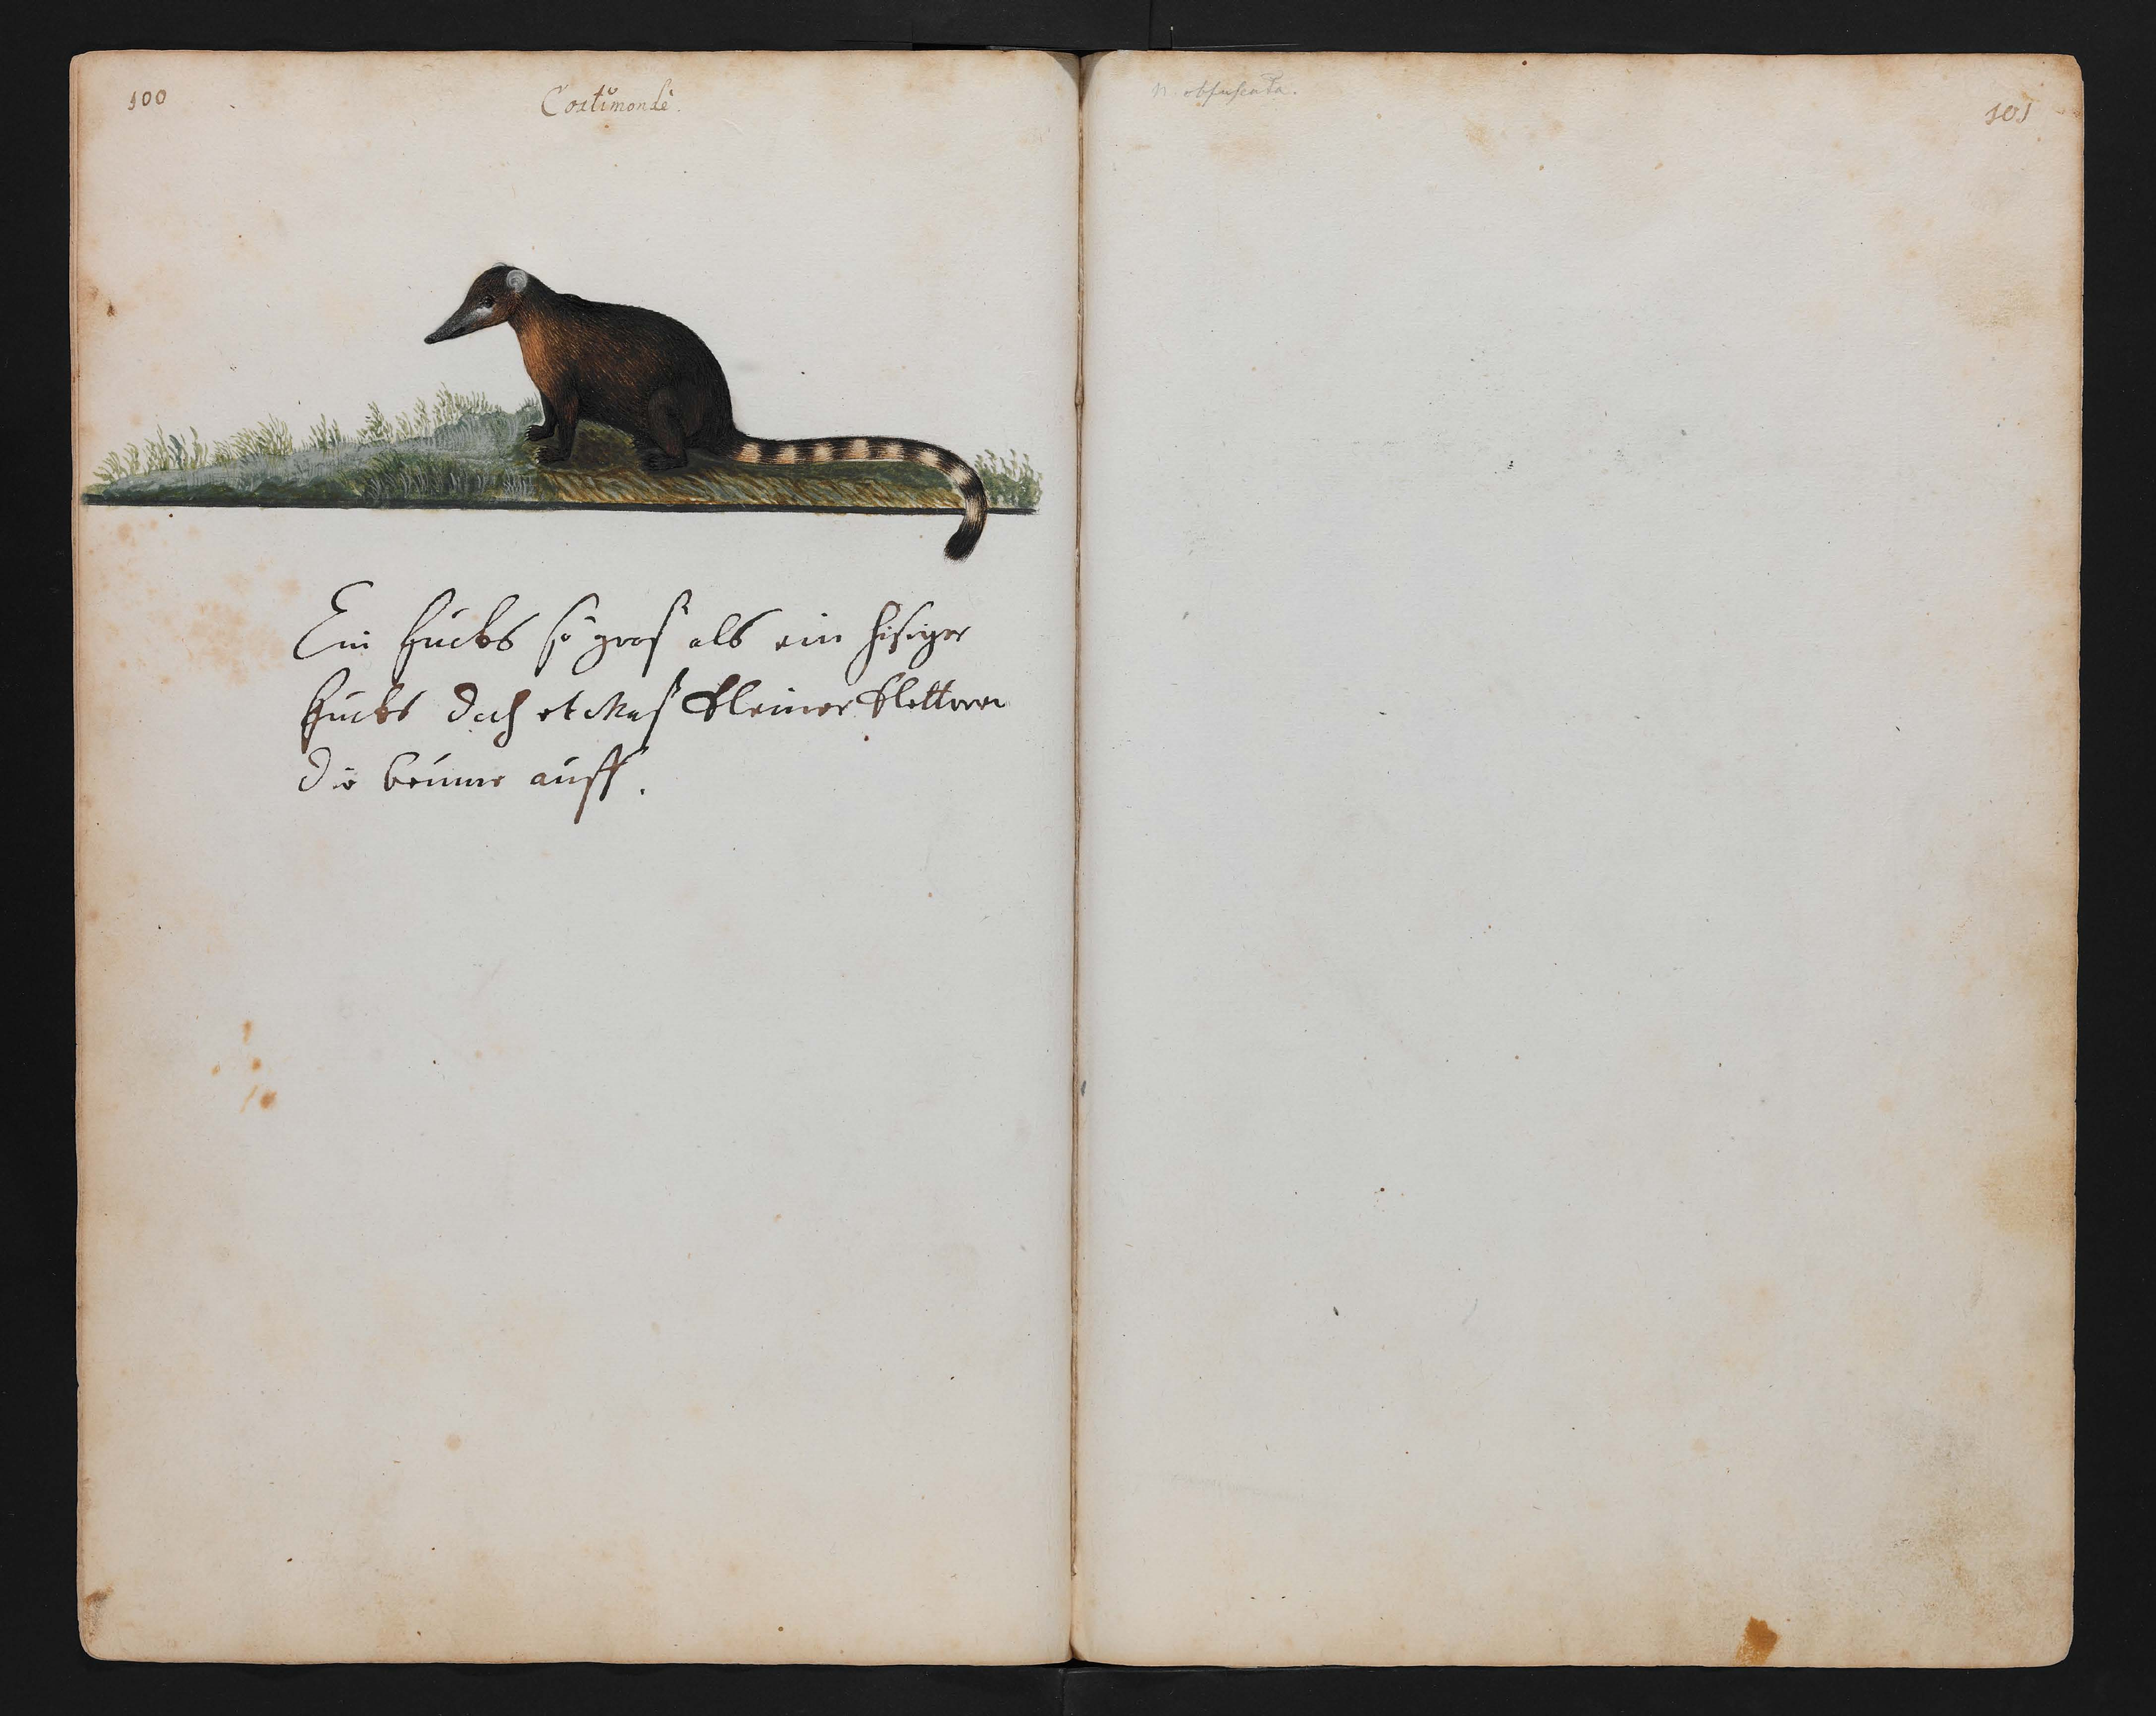 100
Coatimondi.
Ein fucks so gros als ein hisiger
fucks doch etwas kleiner kletteren
die beume auff.
101